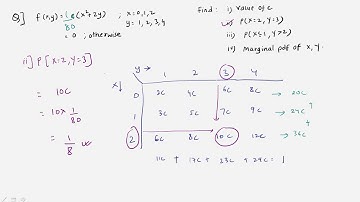 Q] f(x,y) = 1/80 (x²+2y) ; x=0,1,2
y=1,2,3,4
= 0 ; otherwise
find: i) value of c
ii) P(x=2, y=3)
iii) P(x≤1, y>2)
iv) Marginal pdf of x, y.
ii] P[x=2, y=3]
= 10c
= 10 × 1/80
= 1/8
y→ 1 2 3 4
x↓
0 2c 4c 6c 8c → 20c
1 3c 5c 7c 9c → 24c
2 6c 8c 10c 12c → 36c
11c + 17c + 23c + 29c = 1